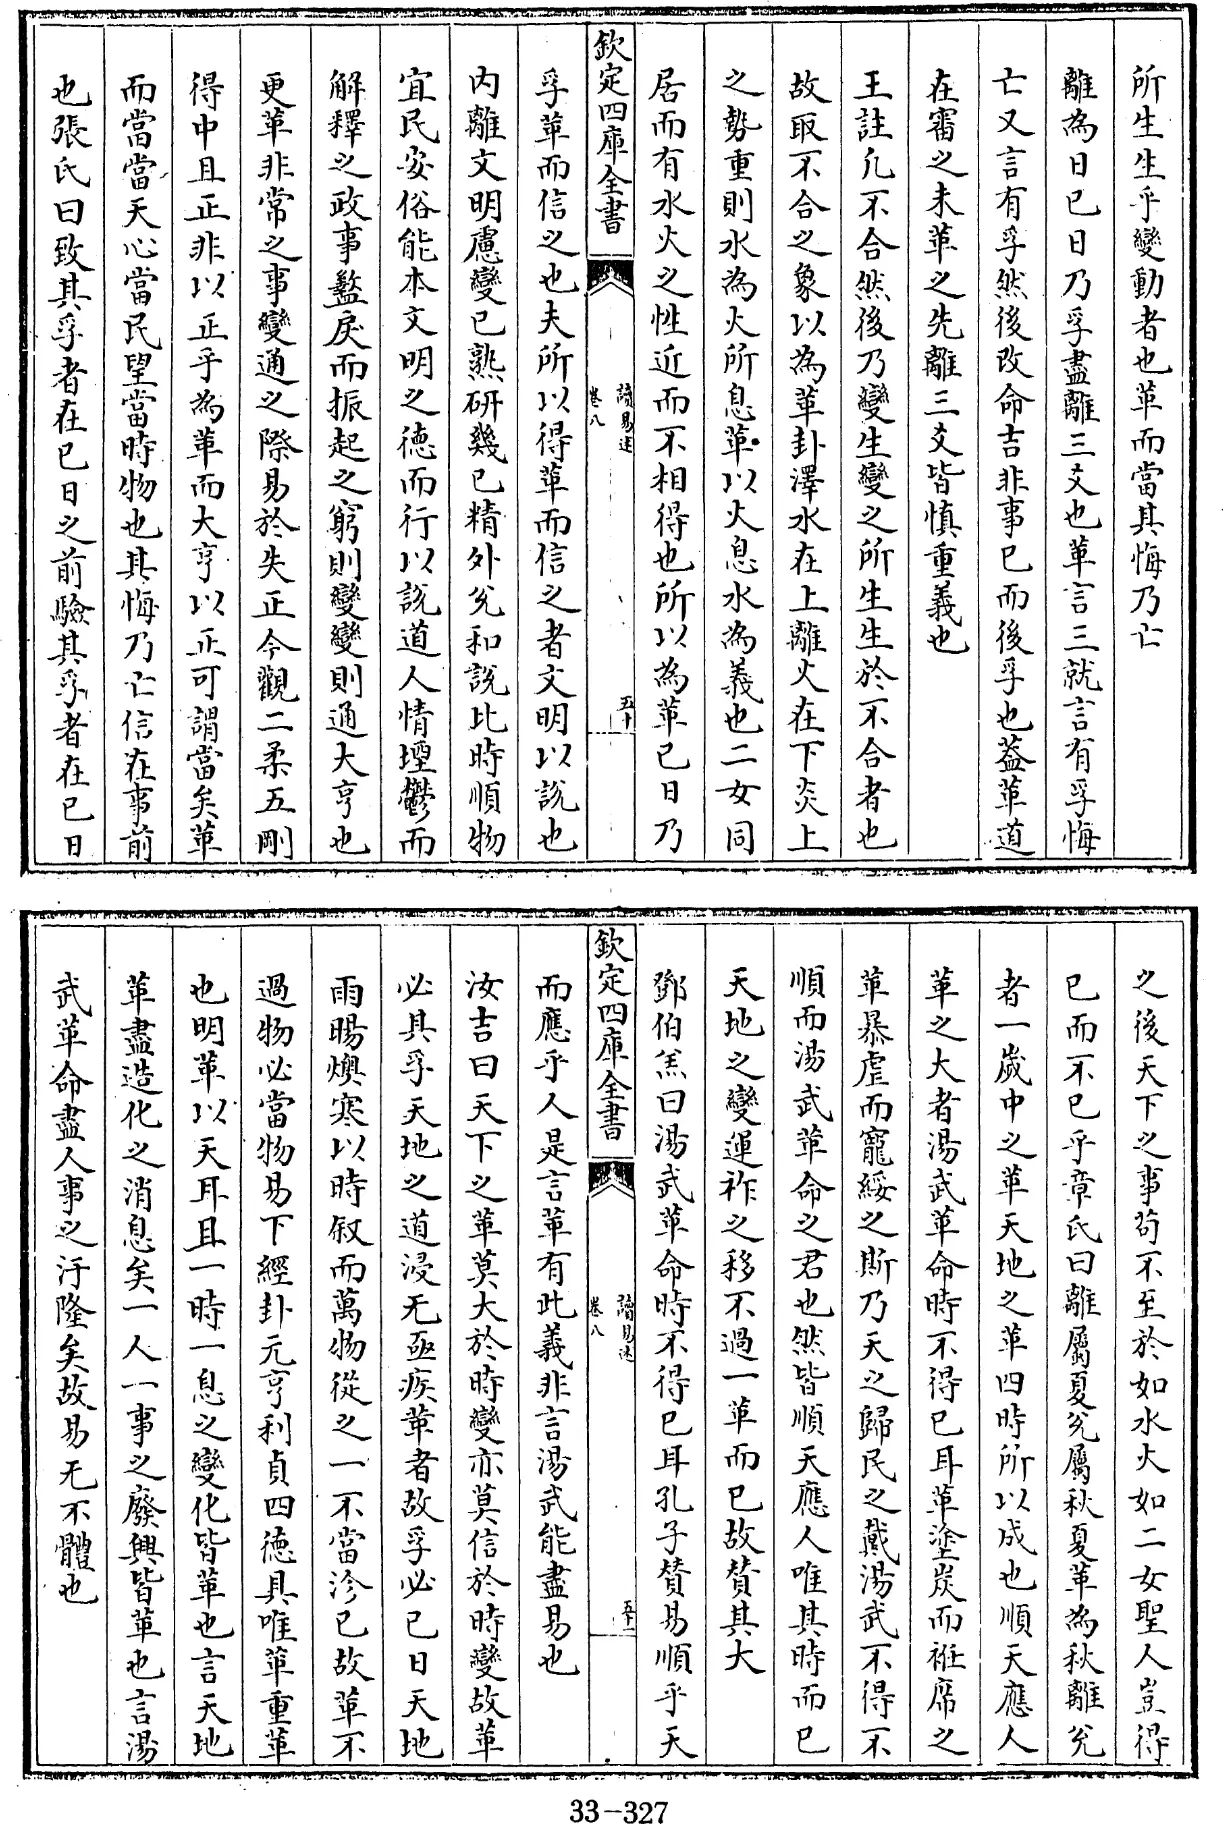 所生生乎變動者也革而當其悔乃亡
離為日已日乃孚盡離三爻也革言三就言有孚悔
亡又言有孚然後改命吉非事已而後孚也葢革道
在審之未革之先離三爻皆慎重義也
王註凢不合然後乃變生變之所生生於不合者也
故取不合之象以為革卦澤水在上離火在下炎上
之勢重則水為火所息革以火息水為義也二女同
居而有水火之性近而不相得也所以為革已日乃
欽定四庫全書
讀易述
卷八
五十
孚革而信之也夫所以得革而信之者文明以説也
内離文明慮變已熟研幾已精外兊和説比時順物
宜民安俗能本文明之德而行以説道人情堙鬱而
解釋之政事盭戾而振起之窮則變變則通大亨也
更革非常之事變通之際易於失正今觀二柔五剛
得中且正非以正乎為革而大亨以正可謂當矣革
而當當天心當民望當時物也其悔乃亡信在事前
也張氏曰致其孚者在已日之前驗其孚者在已日
之後天下之事茍不至於如水火如二女聖人豈得
已而不已乎章氏曰離屬夏兊屬秋夏革為秋離兊
者一嵗中之革天地之革四時所以成也順天應人
革之大者湯武革命時不得已耳革塗炭而袵席之
革暴虐而寵綏之斯乃天之歸民之戴湯武不得不
順而湯武革命之君也然皆順天應人唯其時而已
天地之變運祚之移不過一革而已故賛其大
鄧伯羔曰湯武革命時不得已耳孔子賛易順乎天
欽定四庫全書
讀易述
卷八
五十一
而應乎人是言革有此義非言湯武能盡易也
汝吉曰天下之革莫大於時變亦莫信於時變故革
必具孚天地之道浸无亟疾革者故孚必已日天地
雨暘燠寒以時叙而萬物從之一不當沴已故革不
過物必當物易下經卦元亨利貞四德具唯革重革
也明革以天耳且一時一息之變化皆革也言天地
革盡造化之消息矣一人一事之廢興皆革也言湯
武革命盡人事之汙隆矣故易无不體也
33-327